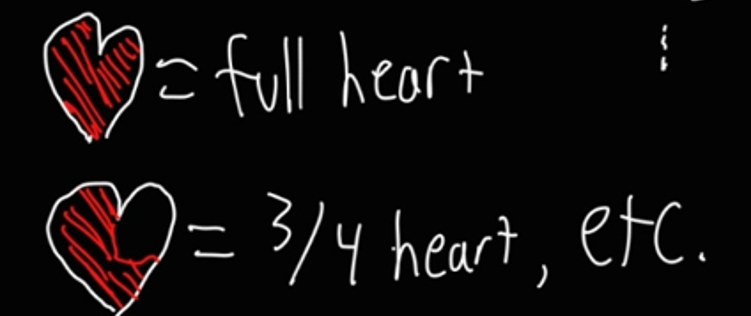 = full heart
= 3/4 heart, etc.